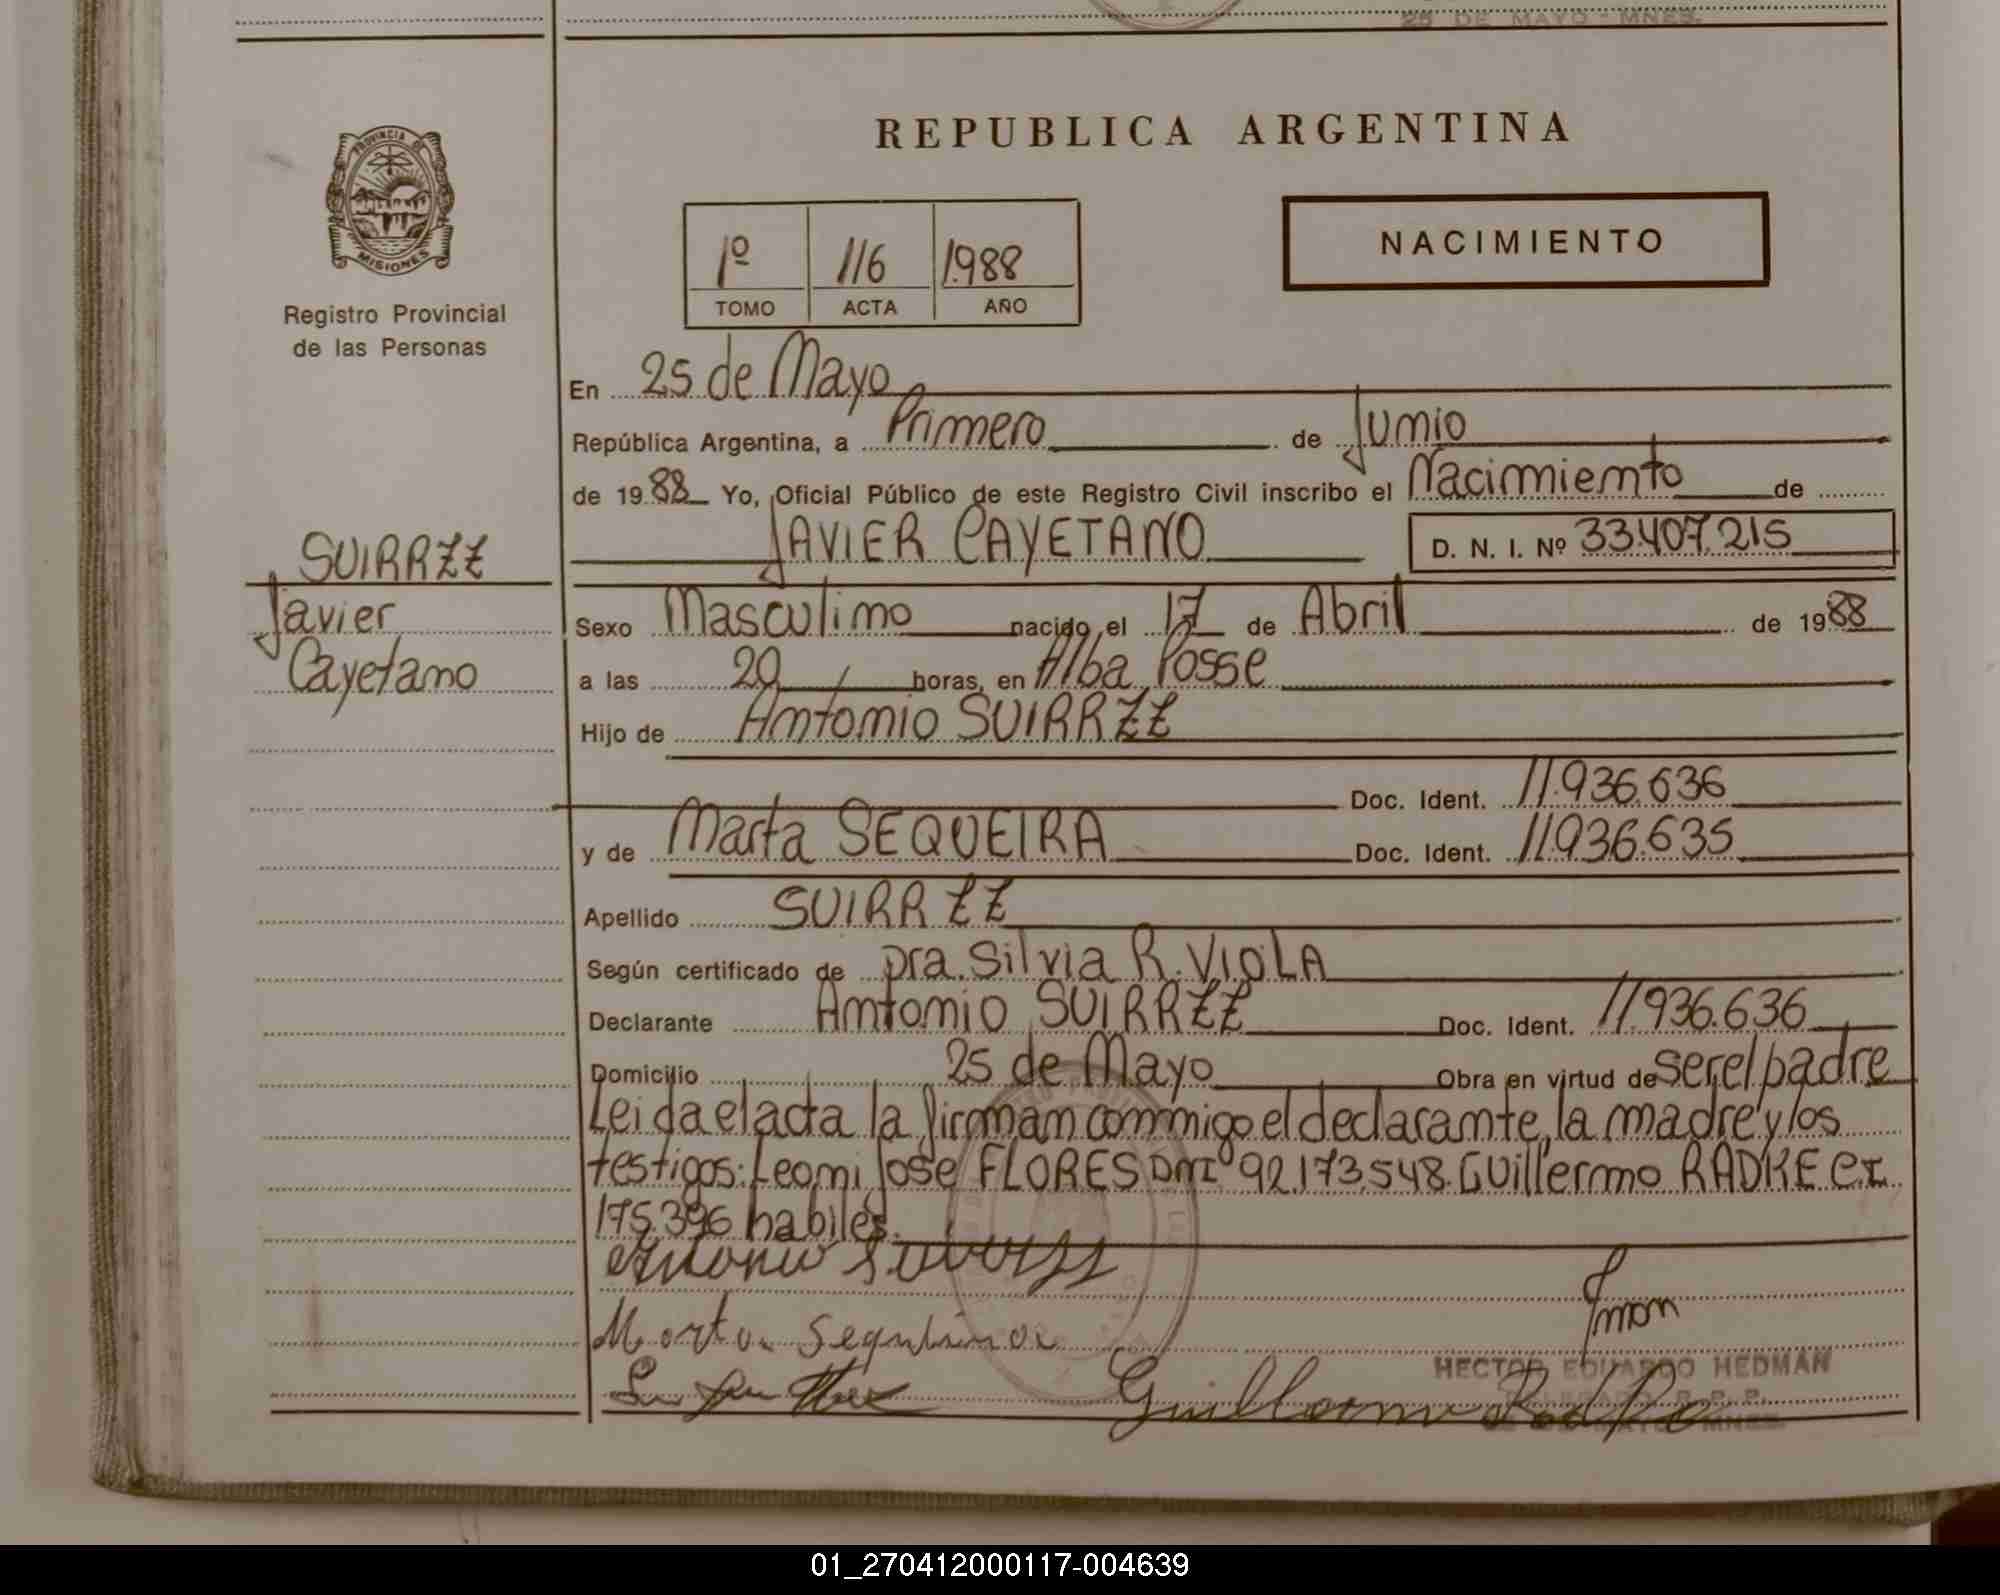 25 DE MAYO - MNES.
PROVINCIA D
MISIONES
Registro Provincial
de las Personas
REPUBLICA ARGENTINA
1º 116 1988
TOMO ACTA AÑO
NACIMIENTO
En 25 de Mayo
República Argentina, a Primero de Junio
de 1988 Yo, Oficial Público de este Registro Civil inscribo el Nacimiento de
JAVIER CAYETANO D. N. I. Nº 33.407.215
SUIRRZZ
Javier
Cayetano
Sexo Masculino nacido el 17 de Abril de 1988
a las 20 horas, en Alba Posse
Hijo de Antonio SUIRRZZ
Doc. Ident. 11.936.636
y de Marta SEQUEIRA Doc. Ident. 11.936.635
Apellido SUIRRZZ
Según certificado de Dra. Silvia R. VIOLA
Declarante Antonio SUIRRZZ Doc. Ident. 11.936.636
Domicilio 25 de Mayo Obra en virtud de ser el padre
Leida el acta la firman conmigo el declarante, la madre y los
testigos: Leoni Jose FLORES DNI 92.173.548. Guillermo RADKE C.I.
175.396 habiles.
Antonio
Marta
HECTOR EDUARDO HEDMAN
DELEGADO R. P. P.
25 DE MAYO - MNES.
Guillermo
01_270412000117-004639